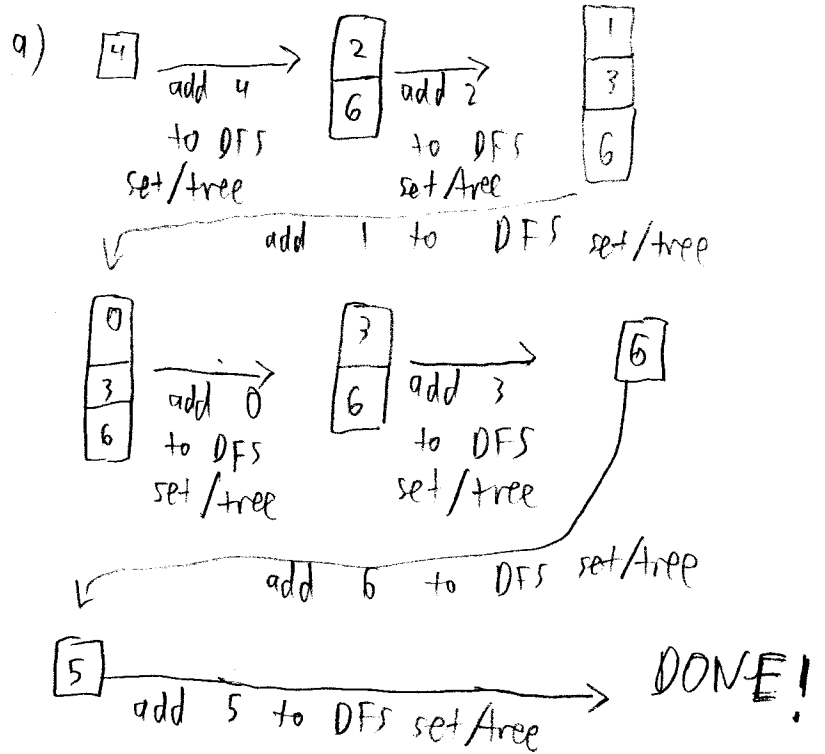 a)
4
add 4
to DFS
set/tree
2
6
add 2
to DFS
set/tree
1
3
6
add 1 to DFS set/tree
0
3
6
add 0
to DFS
set/tree
3
6
add 3
to DFS
set/tree
6
add 6 to DFS set/tree
5
add 5 to DFS set/tree
DONE!